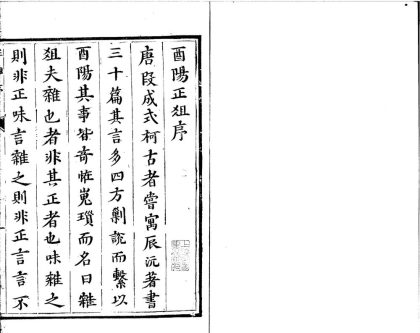 酉陽正俎序
唐段成式柯古者嘗寓辰沅著書
三十篇其言多四方剽詭而繫以
酉陽其事皆竒恠嵬瑣而名曰雜
俎夫雜也者非其正者也味雜之
則非正味言雜之則非正言言不